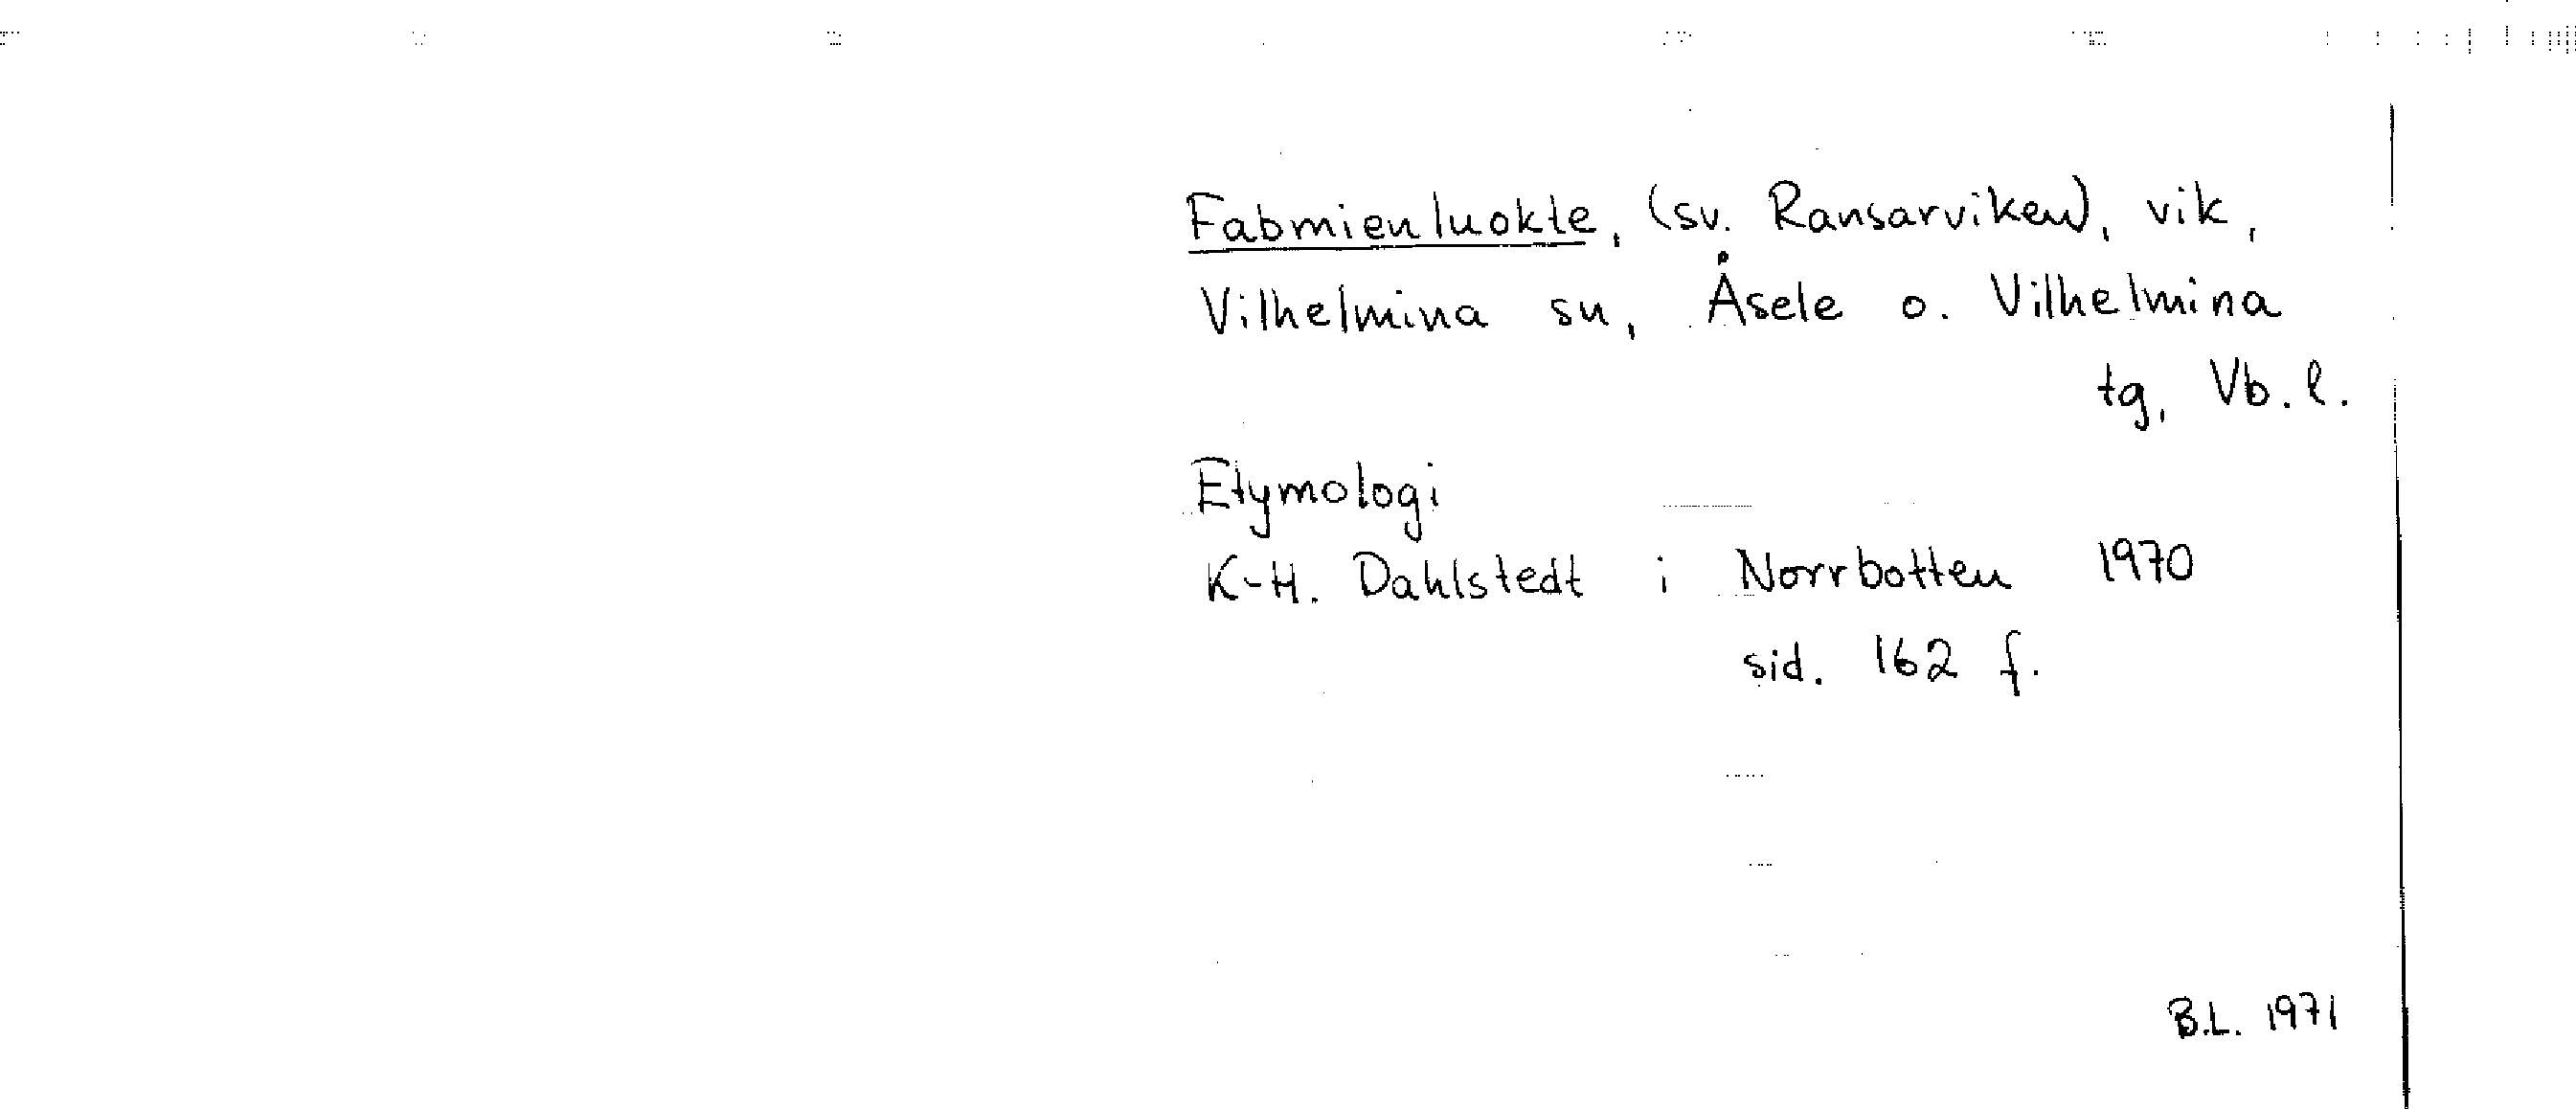 Fabmienluokte, (sv. Ransarviken), vik,
Vilhelmina sn, Åsele o. Vilhelmina
tg, Vb. l.
Etymologi
K-H. Dahlstedt i Norrbotten 1970
sid. 162 f.
B.L. 1971